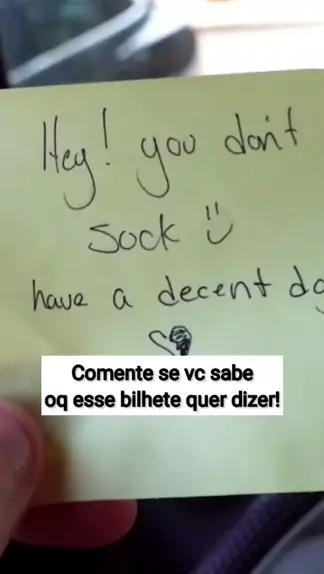 Hey! you don't
sock
have a decent
Comente se vc sabe
oq esse bilhete quer dizer!